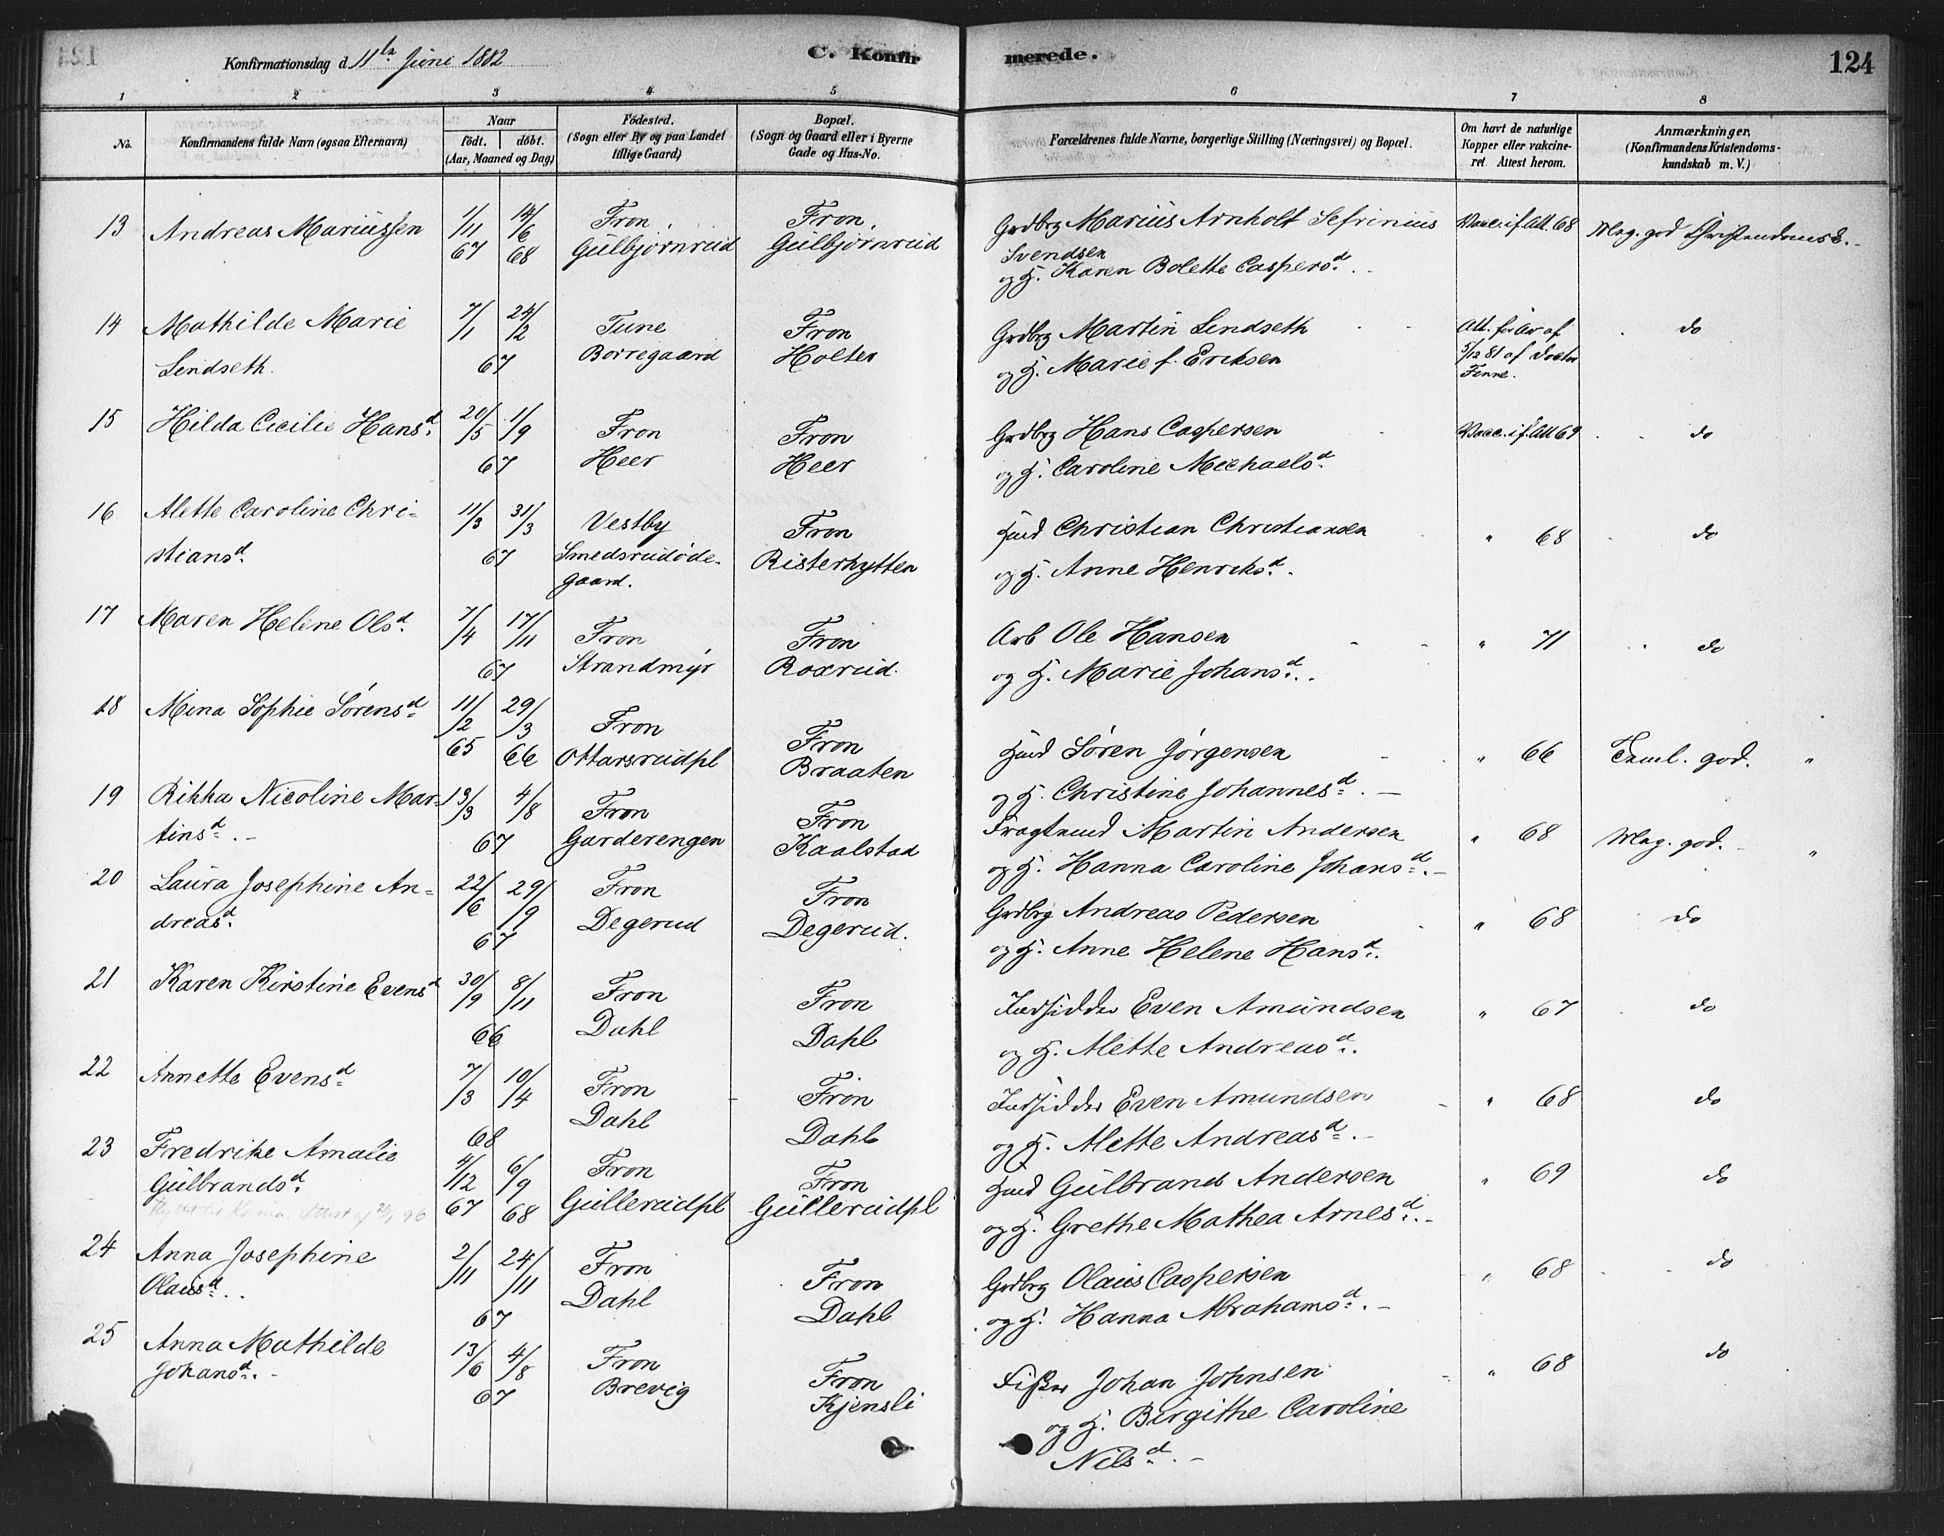 Konfirmationsdag d. 11te Juni 1882
C. Konfirmerede.
124
1 2 3 4 5 6 7 8
No.
Konfirmandens fulde Navn (ogsaa Efternavn)
Naar
født. døbt.
(Aar, Maaned og Dag)
Fødested.
(Sogn eller By og paa Landet
tillige Gaard)
Bopæl.
(Sogn og Gaard eller i Byerne
Gade og Hus-No.
Forældrenes fulde Navne, borgerlige Stilling (Næringsvei) og Bopæl.
Om havt de naturlige
Kopper eller vakcine-
ret. Attest herom.
Anmærkninger.
(Konfirmandens Kristendoms-
kundskab m. V.)
13 Andreas Mariussen 1/11 67 14/6 68 Fron, Gulbjørnrud Fron, Gulbjørnrud Grdbrg Marius Arnholt Sefrinius
Svendsen
og H. Karen Bolette Caspersd. Vacc. if. Att. 68 Mag. god Christendomsk.
14 Mathilde Marie 7/1 24/2 Tune Fron Grdbrg Martin Lindseth Att. do
Lindseth. 67 Borregaard Holter og H. Marie f. Eriksen 5/12 81 af Doctor
Finne.
15 Hilda Cicilie Hansd. 20/5 1/9 Fron Fron Grdbrg Hans Caspersen Vacc. if. Att 69 do
67 Heer Heer og H. Caroline Michaelsd.
16 Alette Caroline Chri- 11/3 31/3 Vestby Fron Hmd Christian Christiansen " 68 do
stiansd. 67 Smedsrudøde- Risterhytten og H. Anne Henriksd.
gaard.
17 Maren Helene Olsd. 7/4 17/11 Fron Fron Arb Ole Hansen " 71 do
67 Strandmyr Roxrud. og H. Marie Johansd.
18 Mina Sophie Sørensd. 11/2 29/3 Fron Fron Hmd Søren Jørgensen " 66 Teml. god. "
65 66 Ottarsrudpl Braaten og H. Christine Johannesd.
19 Rikka Nicoline Mar- 13/3 4/8 Fron Fron Fragtmd Martin Andersen " 68 Mag. god. "
tinsd. 67 Garderengen Kaalstad og H. Hanna Caroline Johansd.
20 Laura Josephine An- 22/6 29/9 Fron Fron Grdbrg Andreas Pedersen " 68 do
dreasd. 67 Degerud Degerud. og H. Anne Helene Hansd.
21 Karen Kirstine Evensd 30/9 8/11 Fron Fron Indsidder Even Amundsen " 67 do
66 Dahl Dahl og H. Alette Andreasd.
22 Annette Evensd. 7/3 10/4 Fron Fron Indsidder Even Amundsen " 68 do
68 Dahl Dahl og H. Alette Andreasd.
23 Fredrike Amalie 4/12 6/9 Fron Fron Hmd Gulbrand Andersen " 69 do
Gulbrandsd. 67 68 Gullerudpl Gullerudpl og H. Grethe Mathea Arnesd.
24 Anna Josephine 2/11 24/11 Fron Fron Grdbrg Olaus Caspersen " 68 do
Olausd. 67 Dahl Dahl og H. Hanna Abrahamsd.
25 Anna Mathilde 13/6 4/8 Fron Fron Fisker Johan Johnsen " 68 do
Johansd. 67 Brevig Kjensli og H. Birgithe Caroline
Nilsd.